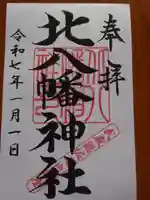 奉拝
北八幡神社
令和七年一月一日